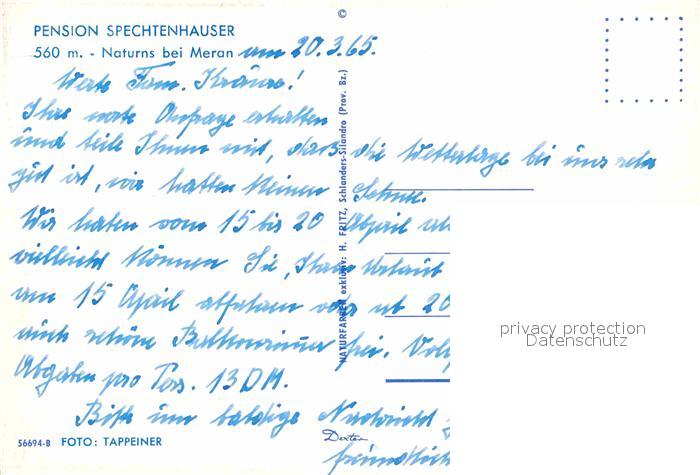 ©
PENSION SPECHTENHAUSER
560 m. - Naturns bei Meran am 20.3.65.
Werte Fam. Kränze!
Ihre werte Anfrage erhalten
und teile Ihnen mit, dass die Wetterlage bei uns sehr
gut ist, wir hatten keinen Schnee.
Wir haben vom 15 bis 20 April
vielleicht können Sie, Ihren Urlaub
am 15 April ab 20
auch schöne Balkonzimmer frei.
Abgaben pro Pers. 13 DM.
Bitte um baldige Nachricht
freundlich
Dexter
56694-B FOTO: TAPPEINER
NATURFARBEN exklusiv: H. FRITZ, Schlanders-Silandro (Prov. Bz.)
privacy protection
Datenschutz